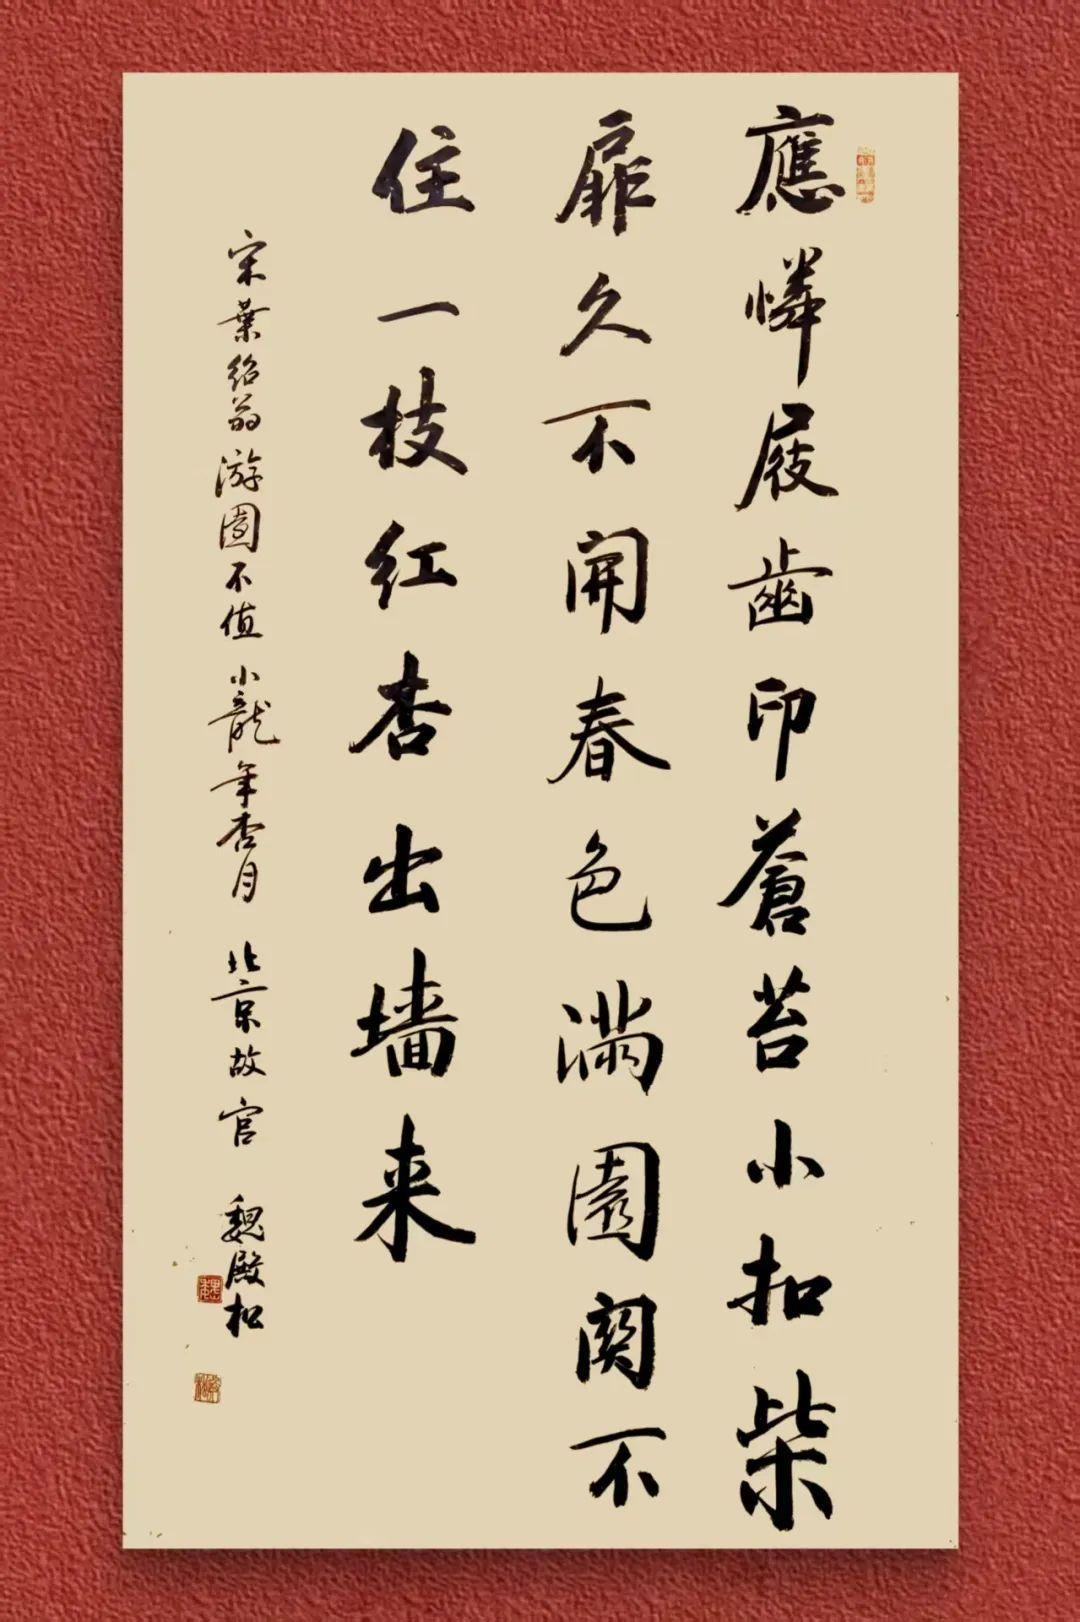 應憐屐齒印蒼苔小扣柴
扉久不開春色滿園関不
住一枝红杏出墙来
宋葉绍翁游園不值 小龍年杏月 北京故宫 魏殿松
魏